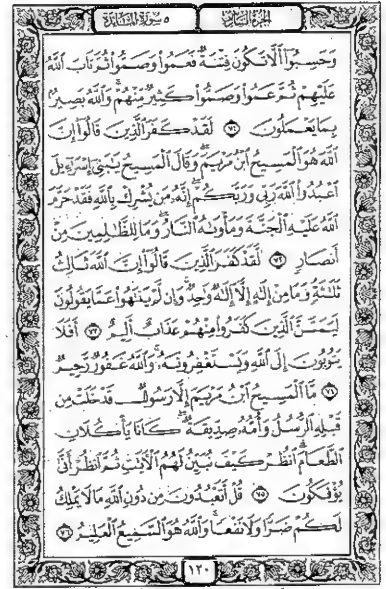 ٥ سورة المائدة
الجزء السادس
وَحَسِبُوٓا۟ أَلَّا تَكُونَ فِتْنَةٌ فَعَمُوا۟ وَصَمُّوا۟ ثُمَّ تَابَ ٱللَّهُ
عَلَيْهِمْ ثُمَّ عَمُوا۟ وَصَمُّوا۟ كَثِيرٌ مِّنْهُمْ وَٱللَّهُ بَصِيرٌۢ
بِمَا يَعْمَلُونَ ٧١ لَقَدْ كَفَرَ ٱلَّذِينَ قَالُوٓا۟ إِنَّ
ٱللَّهَ هُوَ ٱلْمَسِيحُ ٱبْنُ مَرْيَمَ وَقَالَ ٱلْمَسِيحُ يَٰبَنِىٓ إِسْرَٰٓءِيلَ
ٱعْبُدُوا۟ ٱللَّهَ رَبِّى وَرَبَّكُمْ إِنَّهُۥ مَن يُشْرِكْ بِٱللَّهِ فَقَدْ حَرَّمَ
ٱللَّهُ عَلَيْهِ ٱلْجَنَّةَ وَمَأْوَىٰهُ ٱلنَّارُ وَمَا لِلظَّٰلِمِينَ مِنْ
أَنصَارٍ ٧٢ لَّقَدْ كَفَرَ ٱلَّذِينَ قَالُوٓا۟ إِنَّ ٱللَّهَ ثَالِثُ
ثَلَٰثَةٍ وَمَا مِنْ إِلَٰهٍ إِلَّآ إِلَٰهٌ وَٰحِدٌ وَإِن لَّمْ يَنتَهُوا۟ عَمَّا يَقُولُونَ
لَيَمَسَّنَّ ٱلَّذِينَ كَفَرُوا۟ مِنْهُمْ عَذَابٌ أَلِيمٌ ٧٣ أَفَلَا
يَتُوبُونَ إِلَى ٱللَّهِ وَيَسْتَغْفِرُونَهُۥ وَٱللَّهُ غَفُورٌ رَّحِيمٌ
٧٤ مَّا ٱلْمَسِيحُ ٱبْنُ مَرْيَمَ إِلَّا رَسُولٌ قَدْ خَلَتْ مِن
قَبْلِهِ ٱلرُّسُلُ وَأُمُّهُۥ صِدِّيقَةٌ كَانَا يَأْكُلَانِ
ٱلطَّعَامَ ٱنظُرْ كَيْفَ نُبَيِّنُ لَهُمُ ٱلْءَايَٰتِ ثُمَّ ٱنظُرْ أَنَّىٰ
يُؤْفَكُونَ ٧٥ قُلْ أَتَعْبُدُونَ مِن دُونِ ٱللَّهِ مَا لَا يَمْلِكُ
لَكُمْ ضَرًّا وَلَا نَفْعًا وَٱللَّهُ هُوَ ٱلسَّمِيعُ ٱلْعَلِيمُ ٧٦
١٢٠